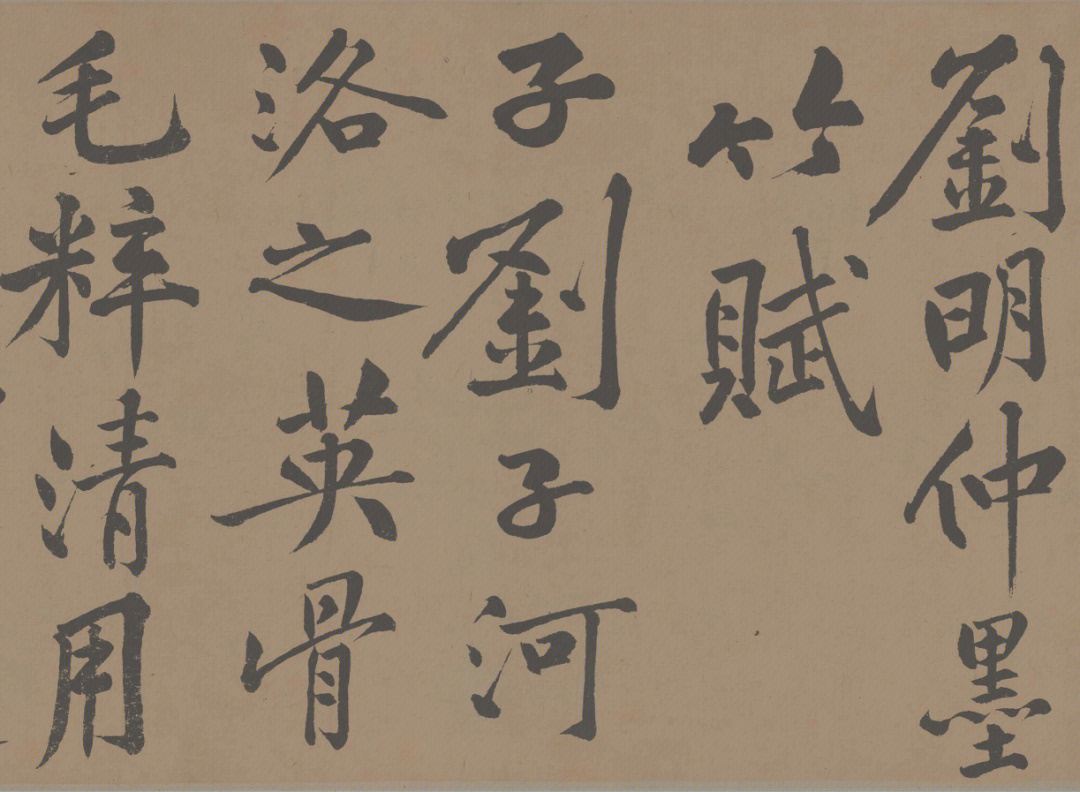 劉明仲墨
竹賦
子劉子河
洛之英骨
毛粹清用